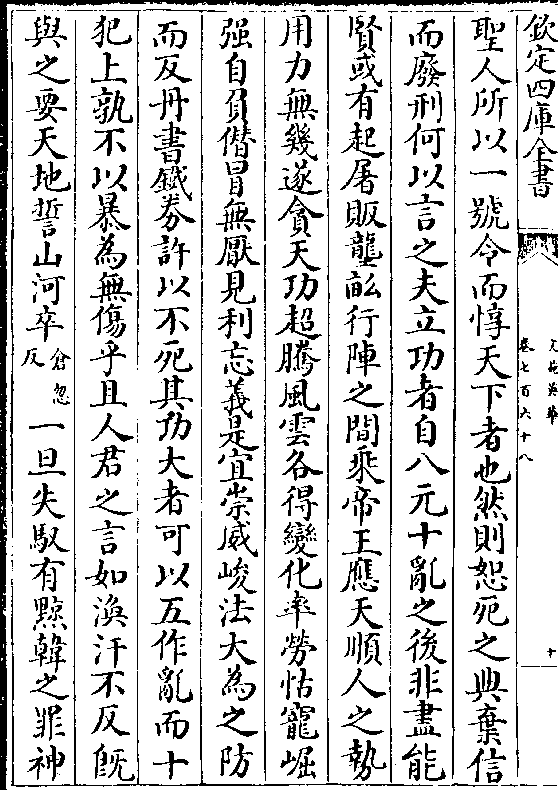 欽定四庫全書
文苑英華
卷七百六十八
十
聖人所以一號令而惇天下者也然則恕死之典棄信
而廢刑何以言之夫立功者自八元十亂之後非盡能
賢或有起屠販壟畝行陣之間乘帝王應天順人之勢
用力無幾遂貪天功超騰風雲各得變化率勞怙寵崛
强自負僣冒無厭見利忘義是宜崇威峻法大為之防
而反丹書鐵券許以不死其功大者可以五作亂而十
犯上孰不以暴為無傷乎且人君之言如渙汗不反旣
與之要天地誓山河卒倉忽反一旦失馭有黥韓之罪神